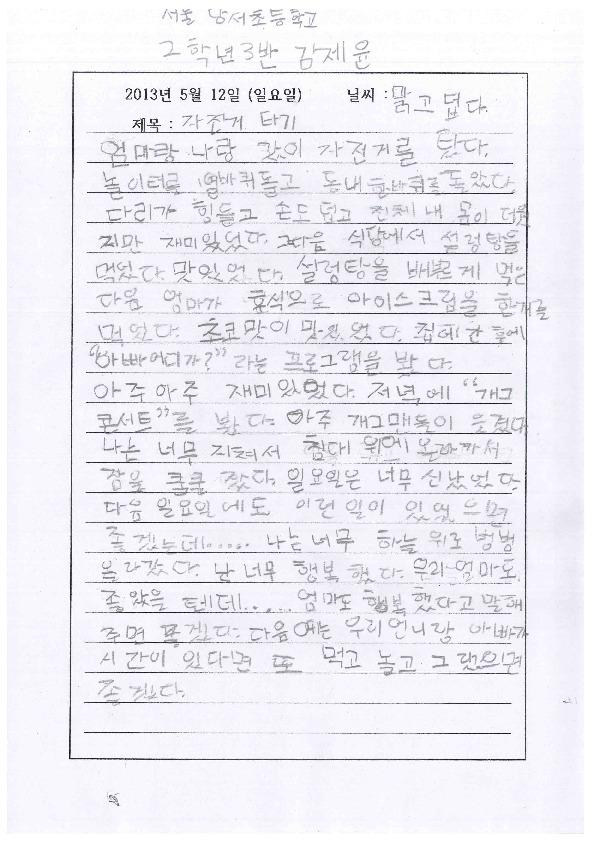 서울 남서초등학교
2학년 3반 김제윤
2013년 5월 12일 (일요일) 날씨 : 맑고 덥다.
제목 : 자전거 타기
엄마랑 나랑 같이 자전거를 탔다.
놀이터를 열바퀴돌고 동내 한바퀴를 돌았다
다리가 힘들고 손도 덥고 전체 내 몸이 더웠
지만 재미있었다. 그다음 식당에서 설렁탕을
먹었다. 맛있었다. 설렁탕을 배부르게 먹은
다음 엄마가 후식으로 아이스크림을 한개를
먹었다. 초코맛이 맛있었다. 집에 간 후에
"아빠 어디가?" 라는 프로그램을 봤다.
아주아주 재미있었다. 저녁에 "개그
콘서트"를 봤다. 아주 개그맨들이 웃겼다
나는 너무 지쳐서 침대 위에 올라가서
잠을 쿨쿨 잤다. 일요일은 너무 신났었다.
다음 일요일에도 이런일이 있었으면
좋겠는데..... 나는 너무 하늘 위로 벙벙
올라갔다. 난 너무 행복했다. 우리 엄마도
좋았을 텐데..... 엄마도 행복했다고 말해
주면 좋겠다. 다음에는 우리언니랑 아빠가
시간이 있다면 또 먹고 놀고 그랬으면
좋겠다.